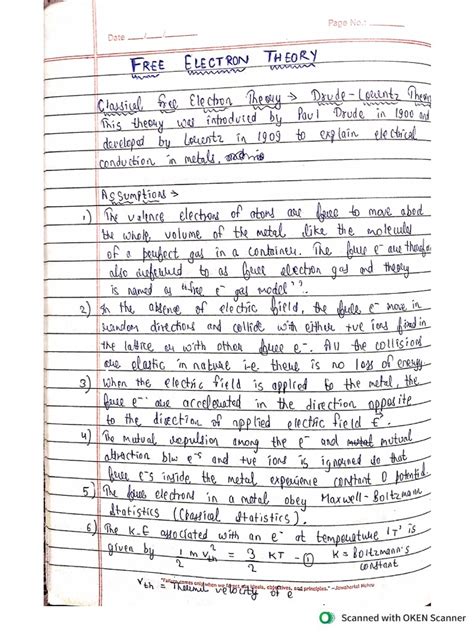 Page No.:
Date
FREE ELECTRON THEORY
Classical Free Electron Theory → Drude - Lorentz Theory
This theory was introduced by Paul Drude in 1900 and
developed by Lorentz in 1909 to explain electrical
conduction in metals,
Assumptions →
1) The valence electrons of atoms are free to move about
the whole volume of the metal, like the molecules
of a perfect gas in a container. The free e⁻ are therefore
also referred to as free electron gas and theory
is named as "free e⁻ gas model".
2) In the absence of electric field, the free e⁻ move in
random directions and collide with either +ve ions fixed in
the lattice or with other free e⁻. All the collisions
are elastic in nature i.e. there is no loss of energy.
3) When the electric field is applied to the metal, the
free e⁻ are accelerated in the direction opposite
to the direction of applied electric field E.
4) The mutual repulsion among the e⁻ and mutual
attraction b/w e⁻s and +ve ions is ignored so that
free e⁻s inside the metal experience constant 0 potential
5) The free electrons in a metal obey Maxwell-Boltzmann
Statistics (Classical Statistics).
6) The K.E associated with an e⁻ at temperature 'T' is
given by 1/2 m v²th = 3/2 KT - ① K = Boltzmann's constant
"Values comes only when we forget our ideals, objectives, and principles." - Jawaharlal Nehru
Vth = Thermal velocity of e⁻
Scanned with OKEN Scanner